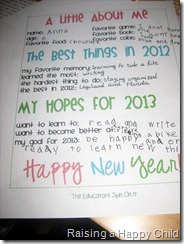 A Little About Me
name: Anna favorite game: I don't
age: 6 favorite book: have
favorite food chocolate favorite color:
The Best Things in 2012
my favorite memory: learning to ride a bike
learned the most: writing
the hardest thing to do: staying organized
the best in 2012: Legoland and Florida
MY HOPES FOR 2013
want to learn to: read and write
want to become better at:
my goal for 2013: be happy a bike
ready to learn new thi
Happy New Year!
The Educators' Spin On It
Raising a Happy Child